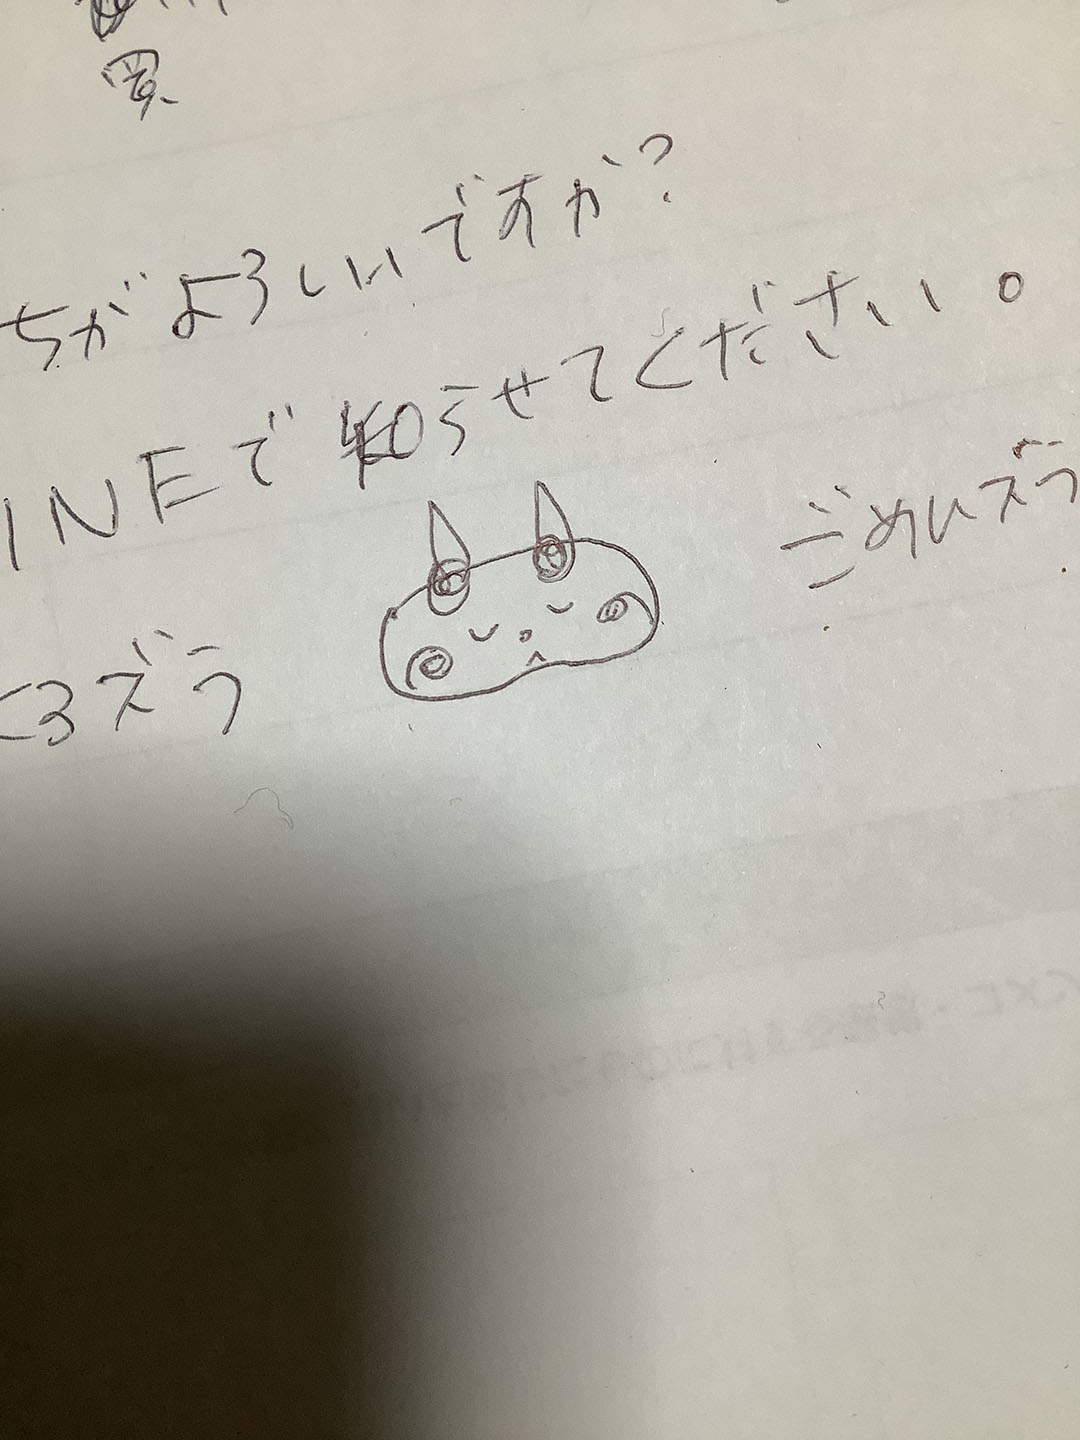 買
ちがよろしいですか?
INEで知らせてください。
ごめいズラ
くるズラ